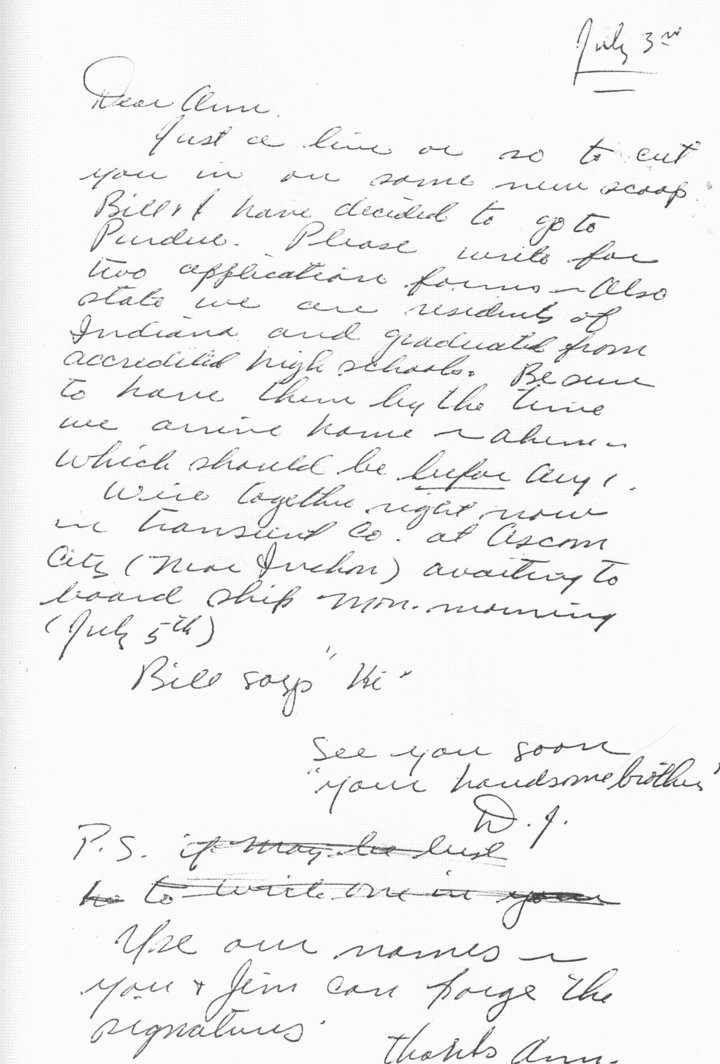 July 3rd
Dear Ann.
Just a line or so to cut
you in on some new scoop
Bill & I have decided to go to
Purdue. Please write for
two application forms ~ Also
state we are residents of
Indiana and graduated from
accredited high schools. Be sure
to have them by the time
we arrive home ~ ahem ~
which should be befor Aug 1.
We're together right now
in transient Co. at Ascom
City (Near Inchon) awaiting to
board ship Mon. morning
(July 5th)
Bill says "Hi"
See you soon
"your handsome brother"
D. J.
P.S. if may be best
to write one in your
Use our names ~
you & Jim can forge the
signatures.
thanks Ann.